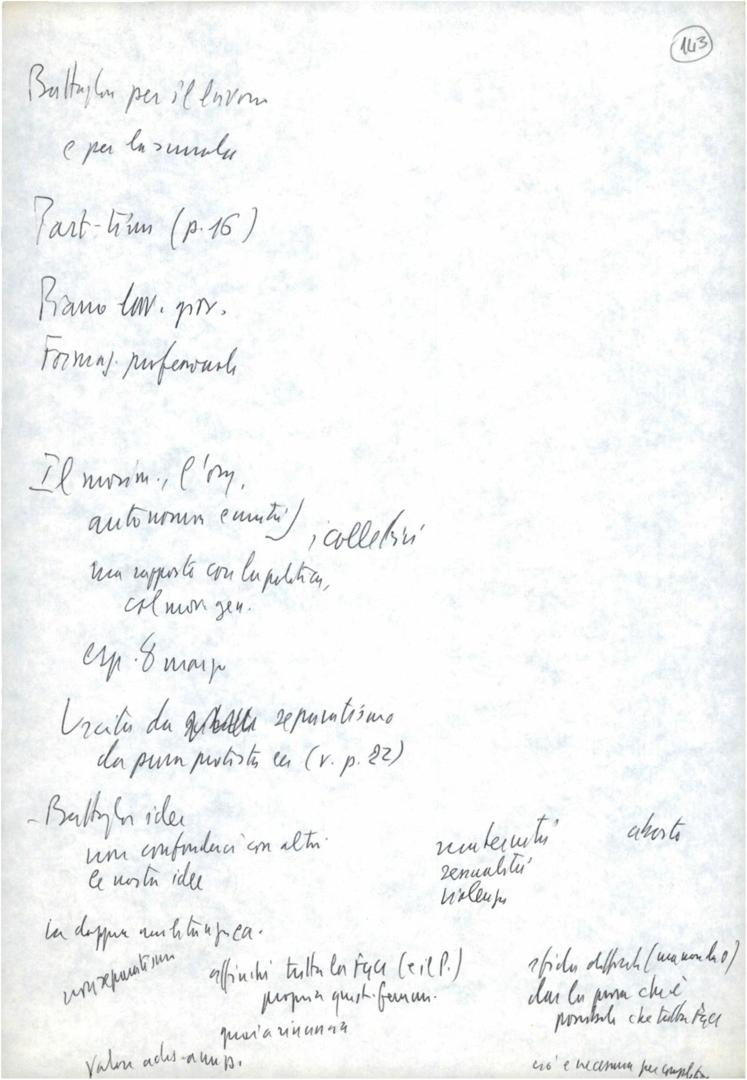 143
Battaglia per il lavoro
e per la scuola
Part-time (p. 16)
Piano lav. giov.
Formaz. professionale
Il movim., l'org.
autonomia e unità, i collettivi
un rapporto con la politica,
col mov. gen.
esp. 8 marzo
Uscita da separatismo
da pura protesta ecc (v. p. 22)
- Battaglia idee
non confonderci con altri
le nostre idee
maternità
sessualità
violenza
aborto
La doppia militanza ecc.
non separatismo
affinché tutta la Fgci (e il P.)
propria quest. femm.
sfida difficile (ma non da 0)
dar la prova che è
possibile che tutta Fgci